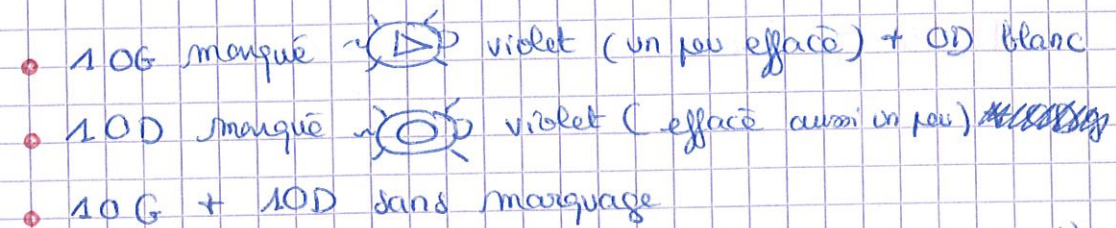 • 1 OG marqué violet (un peu effacé) + OD blanc
• 1 OD marqué violet (effacé aussi un peu)
• 1 OG + 1 OD sans marquage